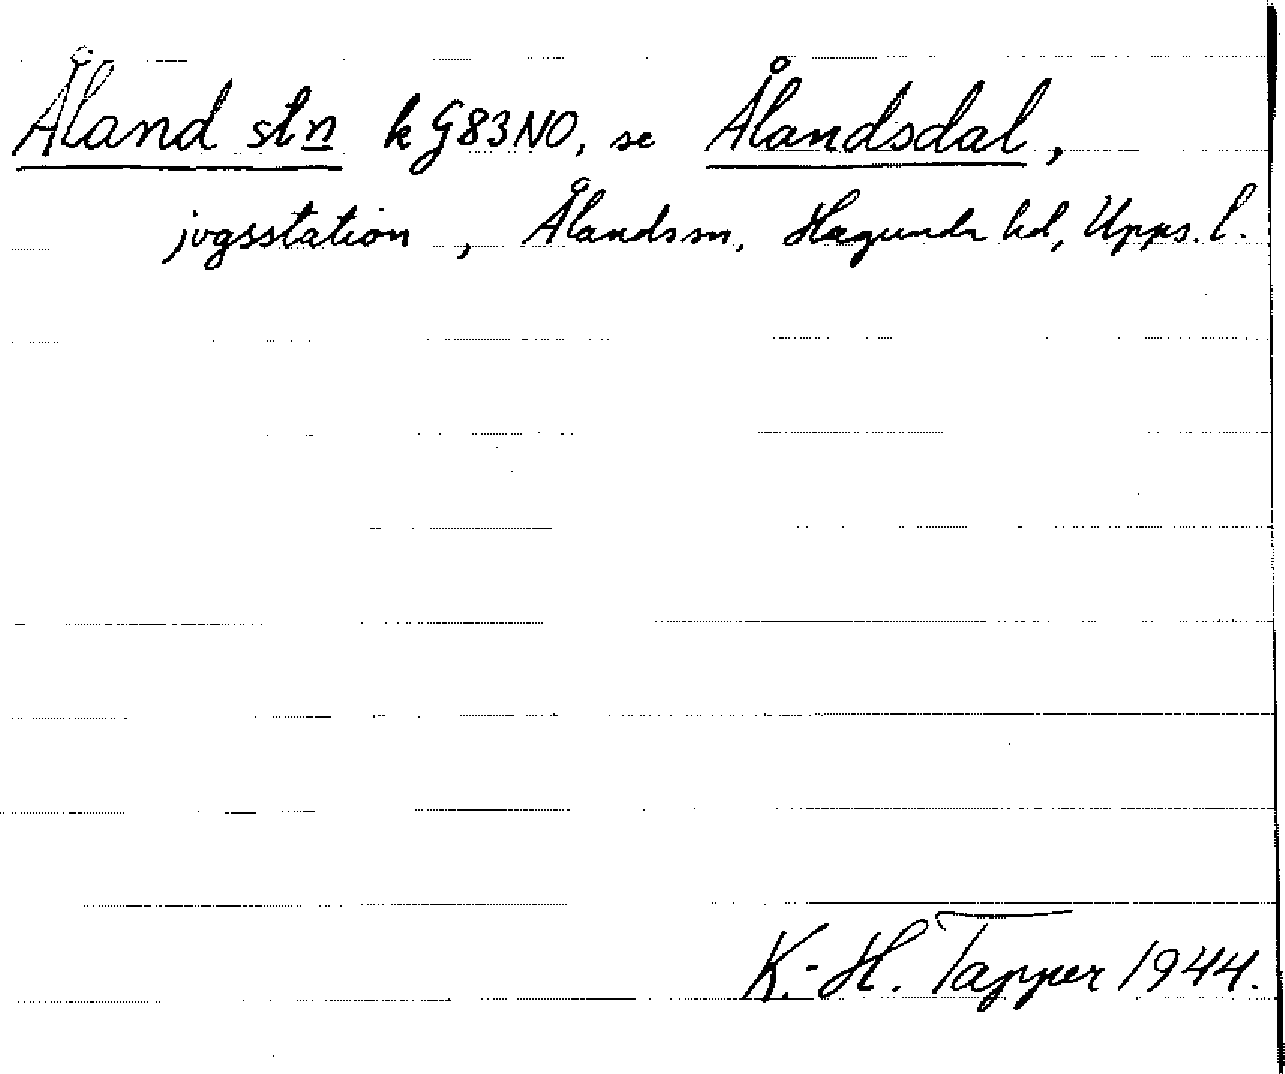 Åland stn k G83NO, se Ålandsdal,
jvgsstation, Ålandsm, Hagunda hd, Upps. l.
K.-H. Tapper 1944.